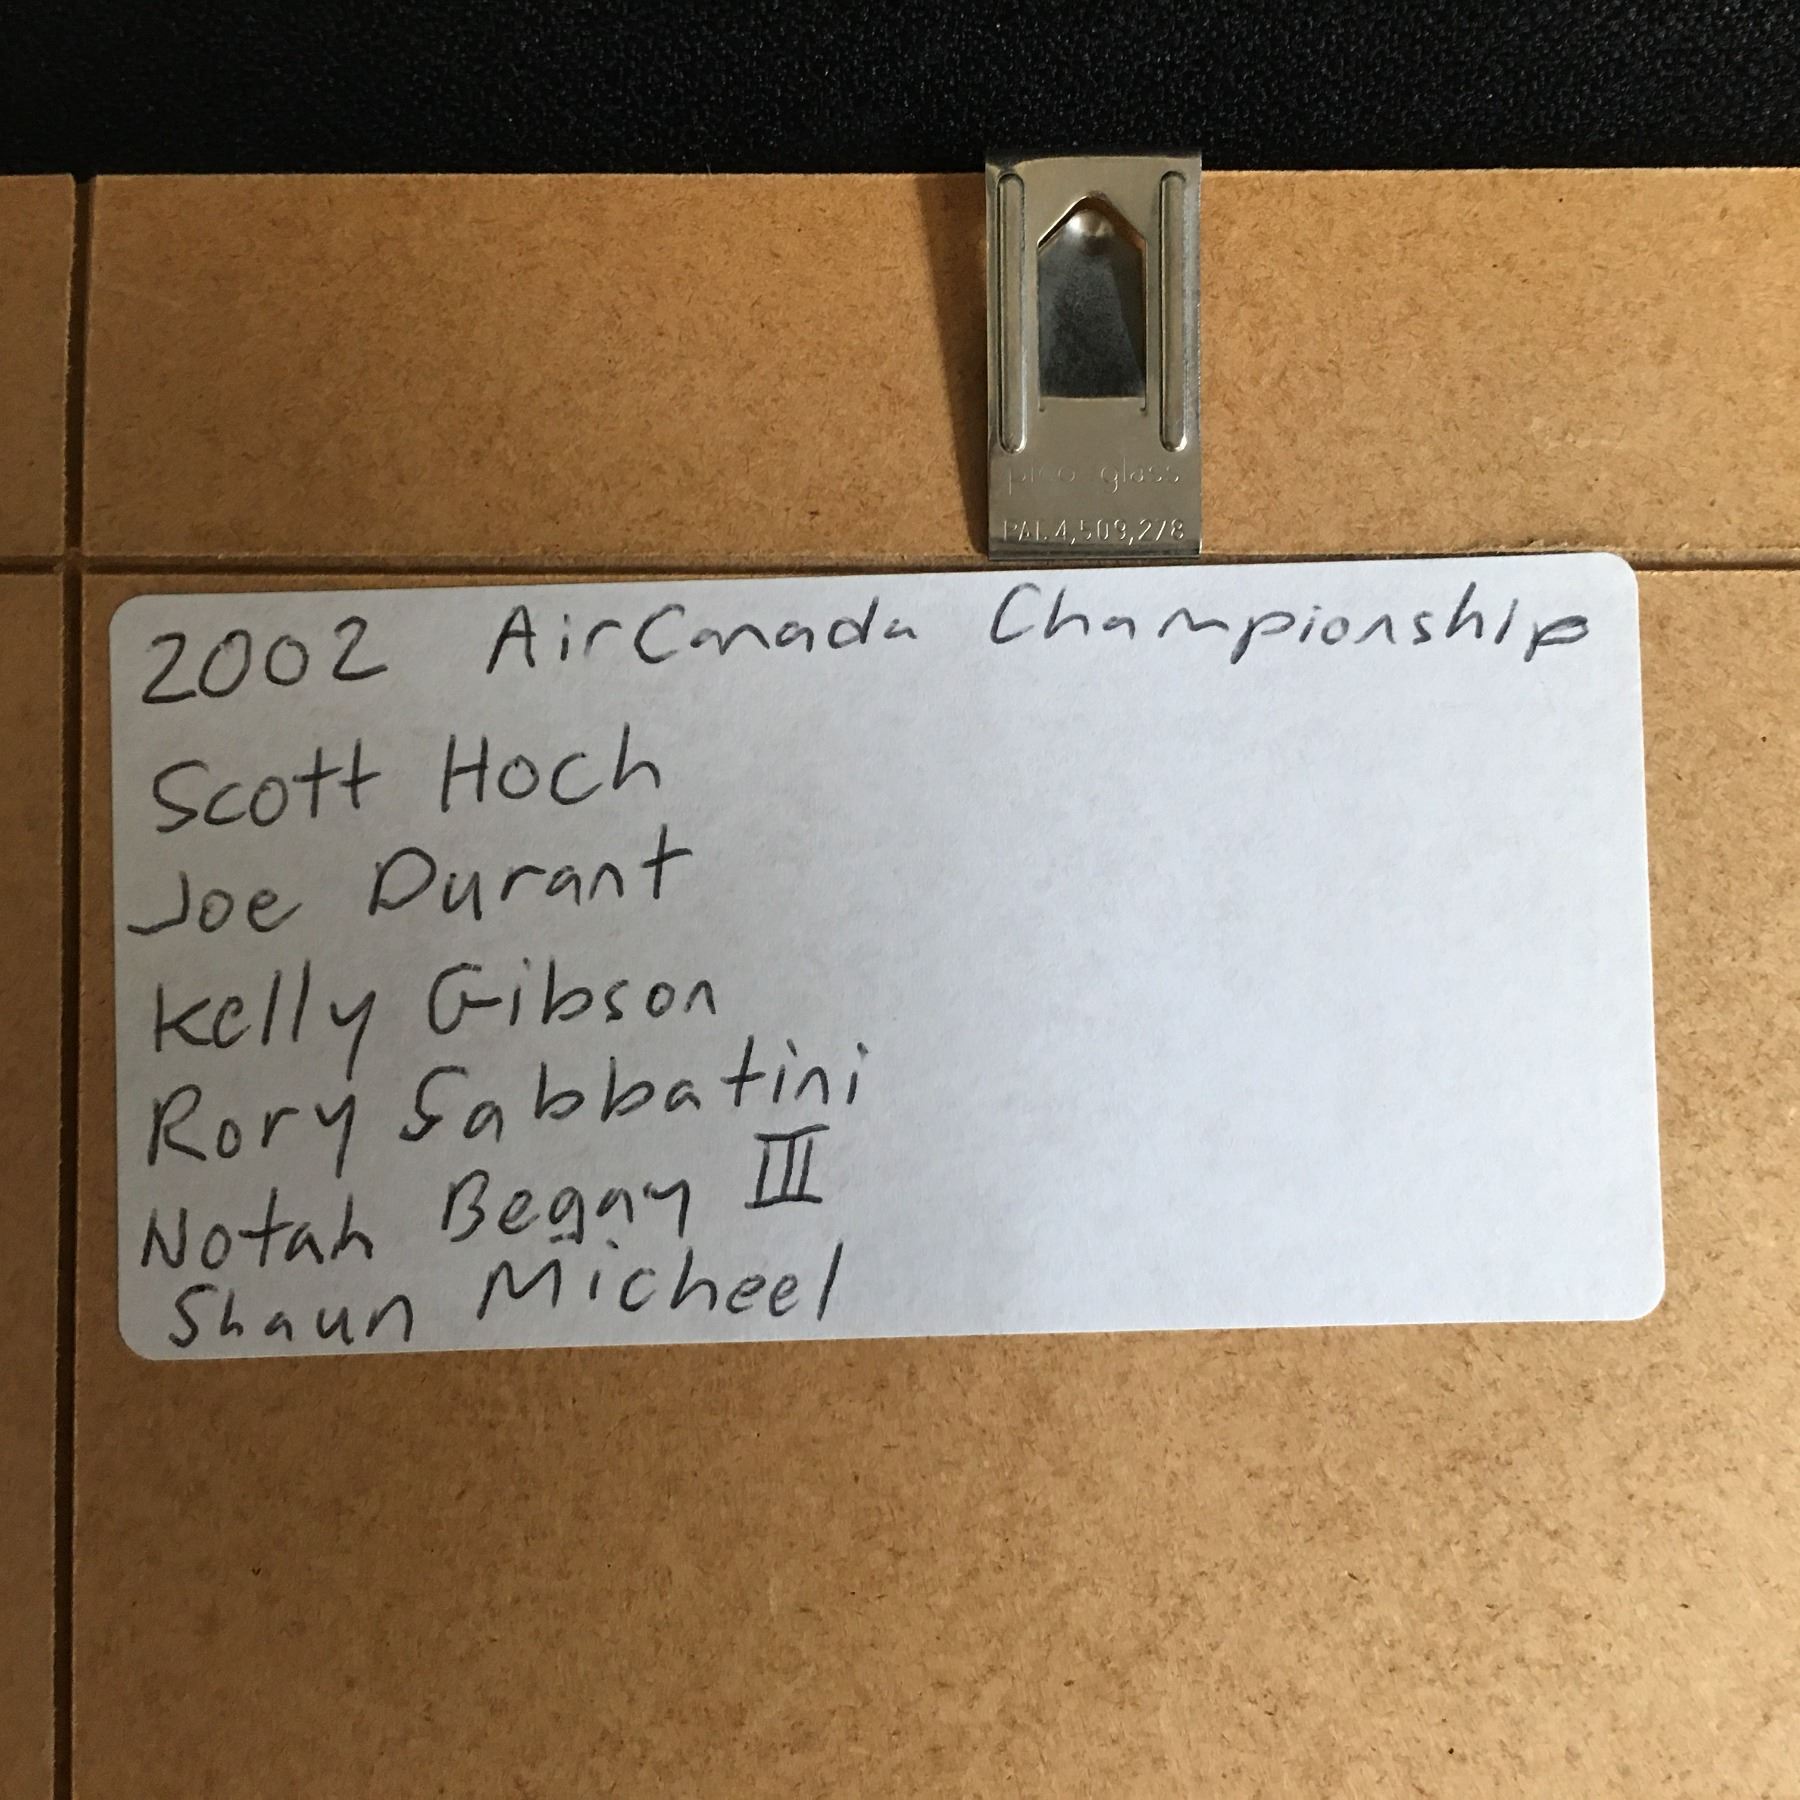 pico glass
PAT.4,509,278
2002 AirCanada Championship
Scott Hoch
Joe Durant
Kelly Gibson
Rory Sabbatini
Notah Begay III
Shaun Micheel